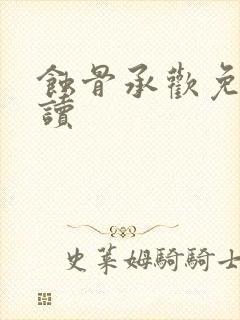 蝕骨承歡免
讀
史萊姆騎騎士